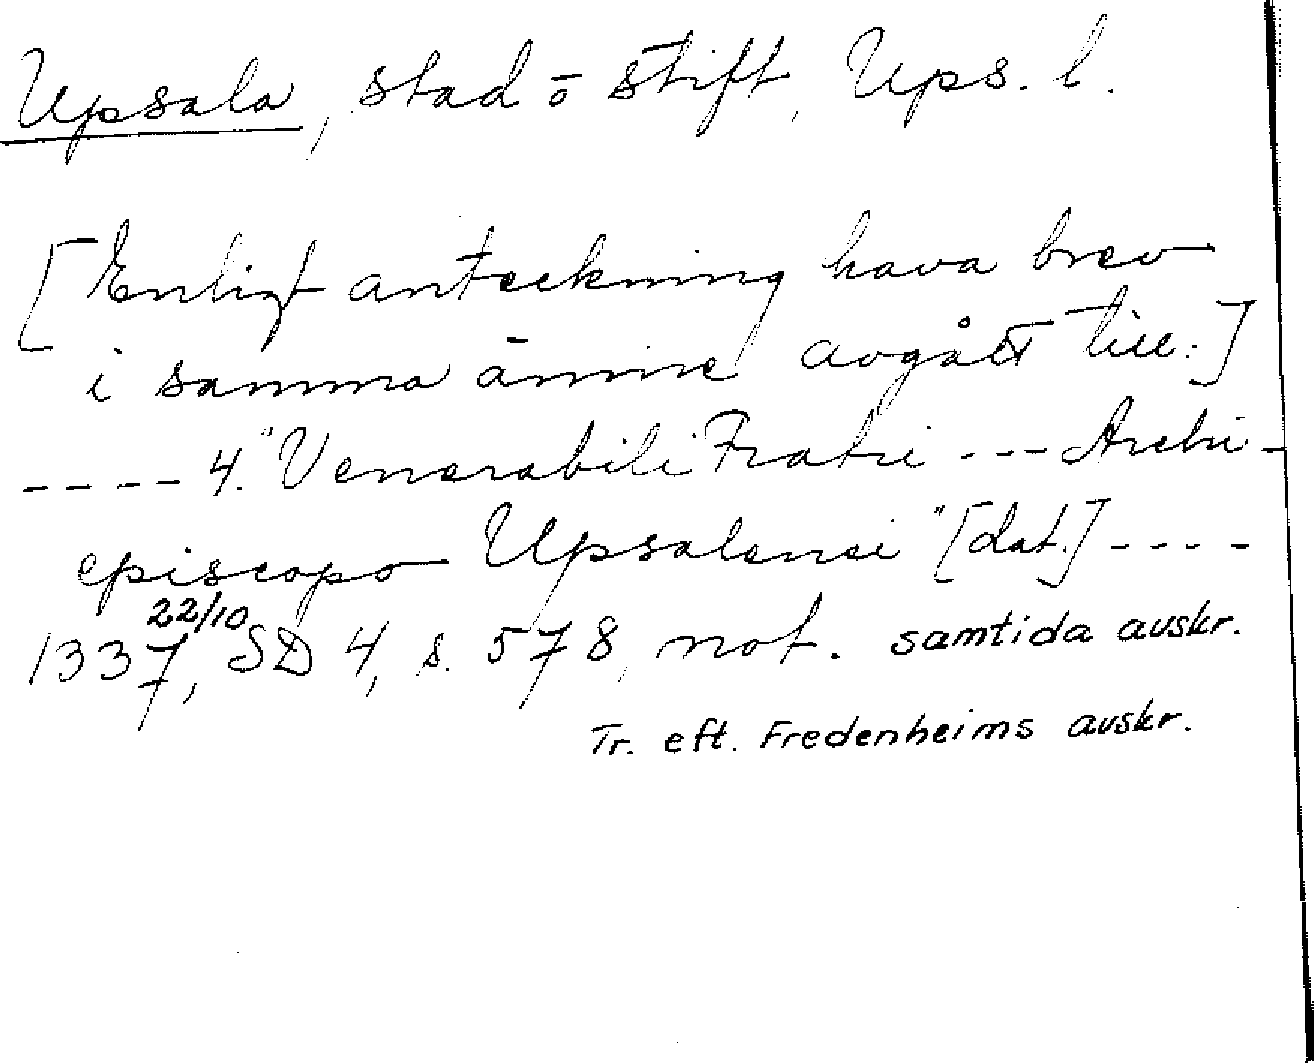 Upsala, stad o stift, Ups. l.
[Enligt anteckning hava brev
i samma ämne avgått till:]
---- 4. "Venerabili Fratri --- Archi-
episcopo Upsalensi" [dat.] ----
22/10
1337, SD 4, s. 578, not. samtida avskr.
Tr. eft. Fredenheims avskr.